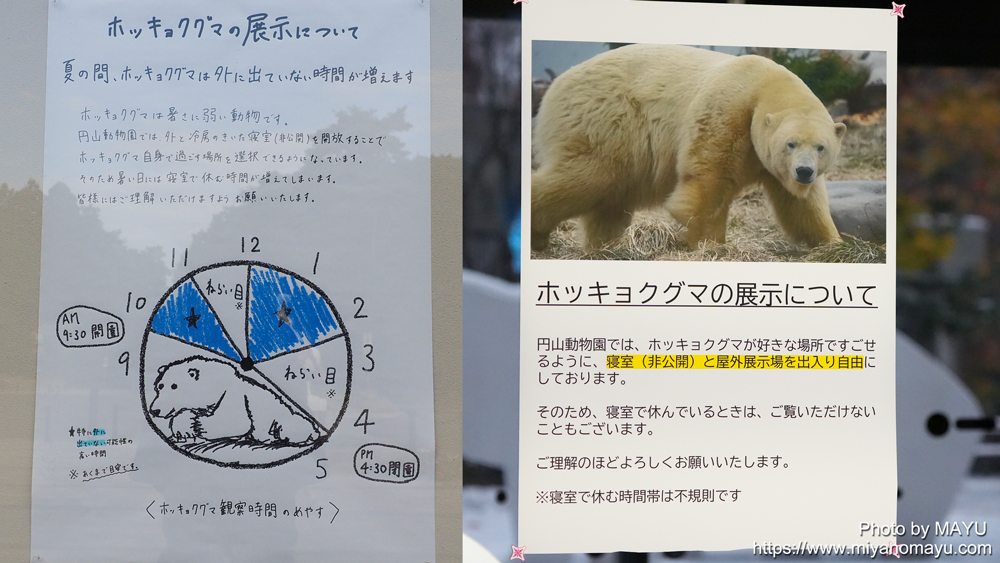 ホッキョクグマの展示について
夏の間、ホッキョクグマは外に出ていない時間が増えます
ホッキョクグマは暑さに弱い動物です。
円山動物園では外と冷房のきいた寝室(非公開)を開放することで
ホッキョクグマ自身で過ごす場所を選択できるようになっています。
そのため暑い日には寝室で休む時間が増えてしまいます。
皆様にはご理解いただけますようお願いいたします。
12
11
1
10
2
9
3
4
5
ねらい目
※
ねらい目
※
AM
9:30開園
PM
4:30閉園
★特に外に
出ていない可能性の
高い時間
※あくまで目安です。
〈ホッキョクグマ観察時間のめやす〉
ホッキョクグマの展示について
円山動物園では、ホッキョクグマが好きな場所ですごせ
るように、寝室（非公開）と屋外展示場を出入り自由に
しております。
そのため、寝室で休んでいるときは、ご覧いただけない
こともございます。
ご理解のほどよろしくお願いいたします。
※寝室で休む時間帯は不規則です
Photo by MAYU
https://www.miyanomayu.com